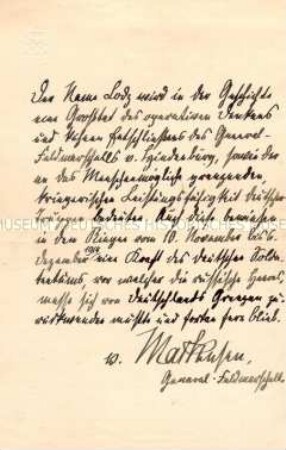 Der Name Lodz wird in der Geschichte
eine Großtat des operativen Denkens
und kühnen Entschließens des General-
Feldmarschalls v. Hindenburg, sowie der
an das Menschenmögliche grenzenden
kriegerischen Leistungsfähigkeit deutscher
Truppen bedeuten. Auch diese bewiesen
in dem Ringen vom 10. November bis 6.
Dezember 1914 eine Kraft des deutschen Solda-
tentums, vor welcher die russische Heeres-
masse sich von Deutschlands Grenzen zu-
rückwenden mußte und fortan fern blieb.
v. Mackensen,
General-Feldmarschall.
DEUTSCHES HISTORISCHES MUSEUM